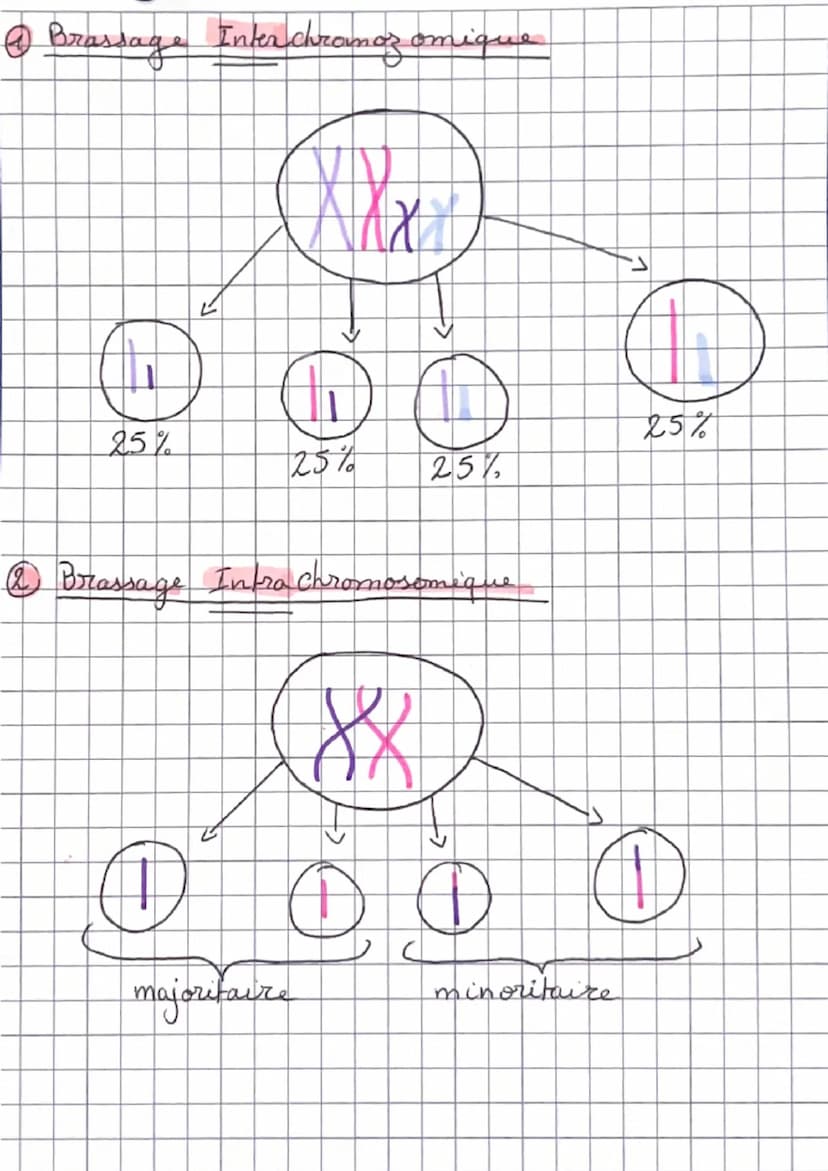 1 Brassage Interchromozomique
25%
25%
25%
25%
2 Brassage Intrachromosomique
majoritaire
minoritaire